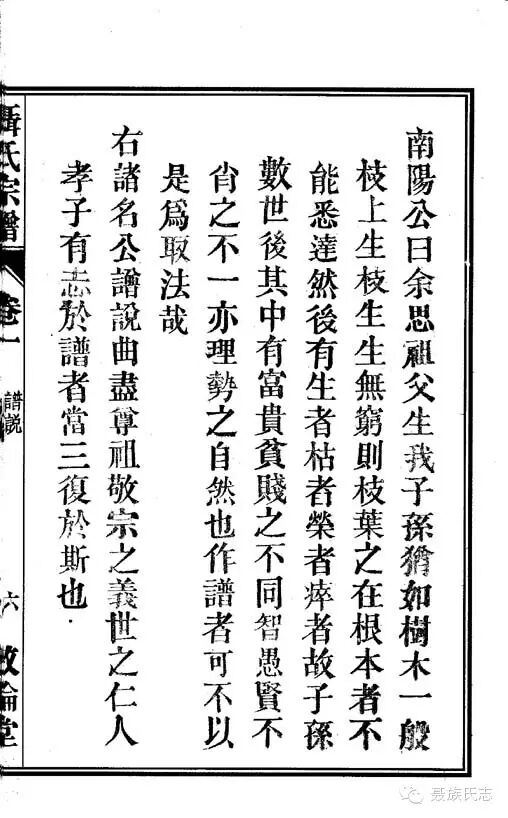 南陽公曰余思祖父生我子孫猶如樹木一般
枝上生枝生生無窮則枝葉之在根本者不
能悉達然後有生者枯者榮者瘁者故子孫
數世後其中有富貴貧賤之不同智愚賢不
肖之不一亦理勢之自然也作譜者可不以
是爲取法哉
右諸名公譜說曲盡尊祖敬宗之義世之仁人
孝子有志於譜者當三復於斯也
聶氏宗譜
卷一
譜説
六
敦倫堂
聂族氏志